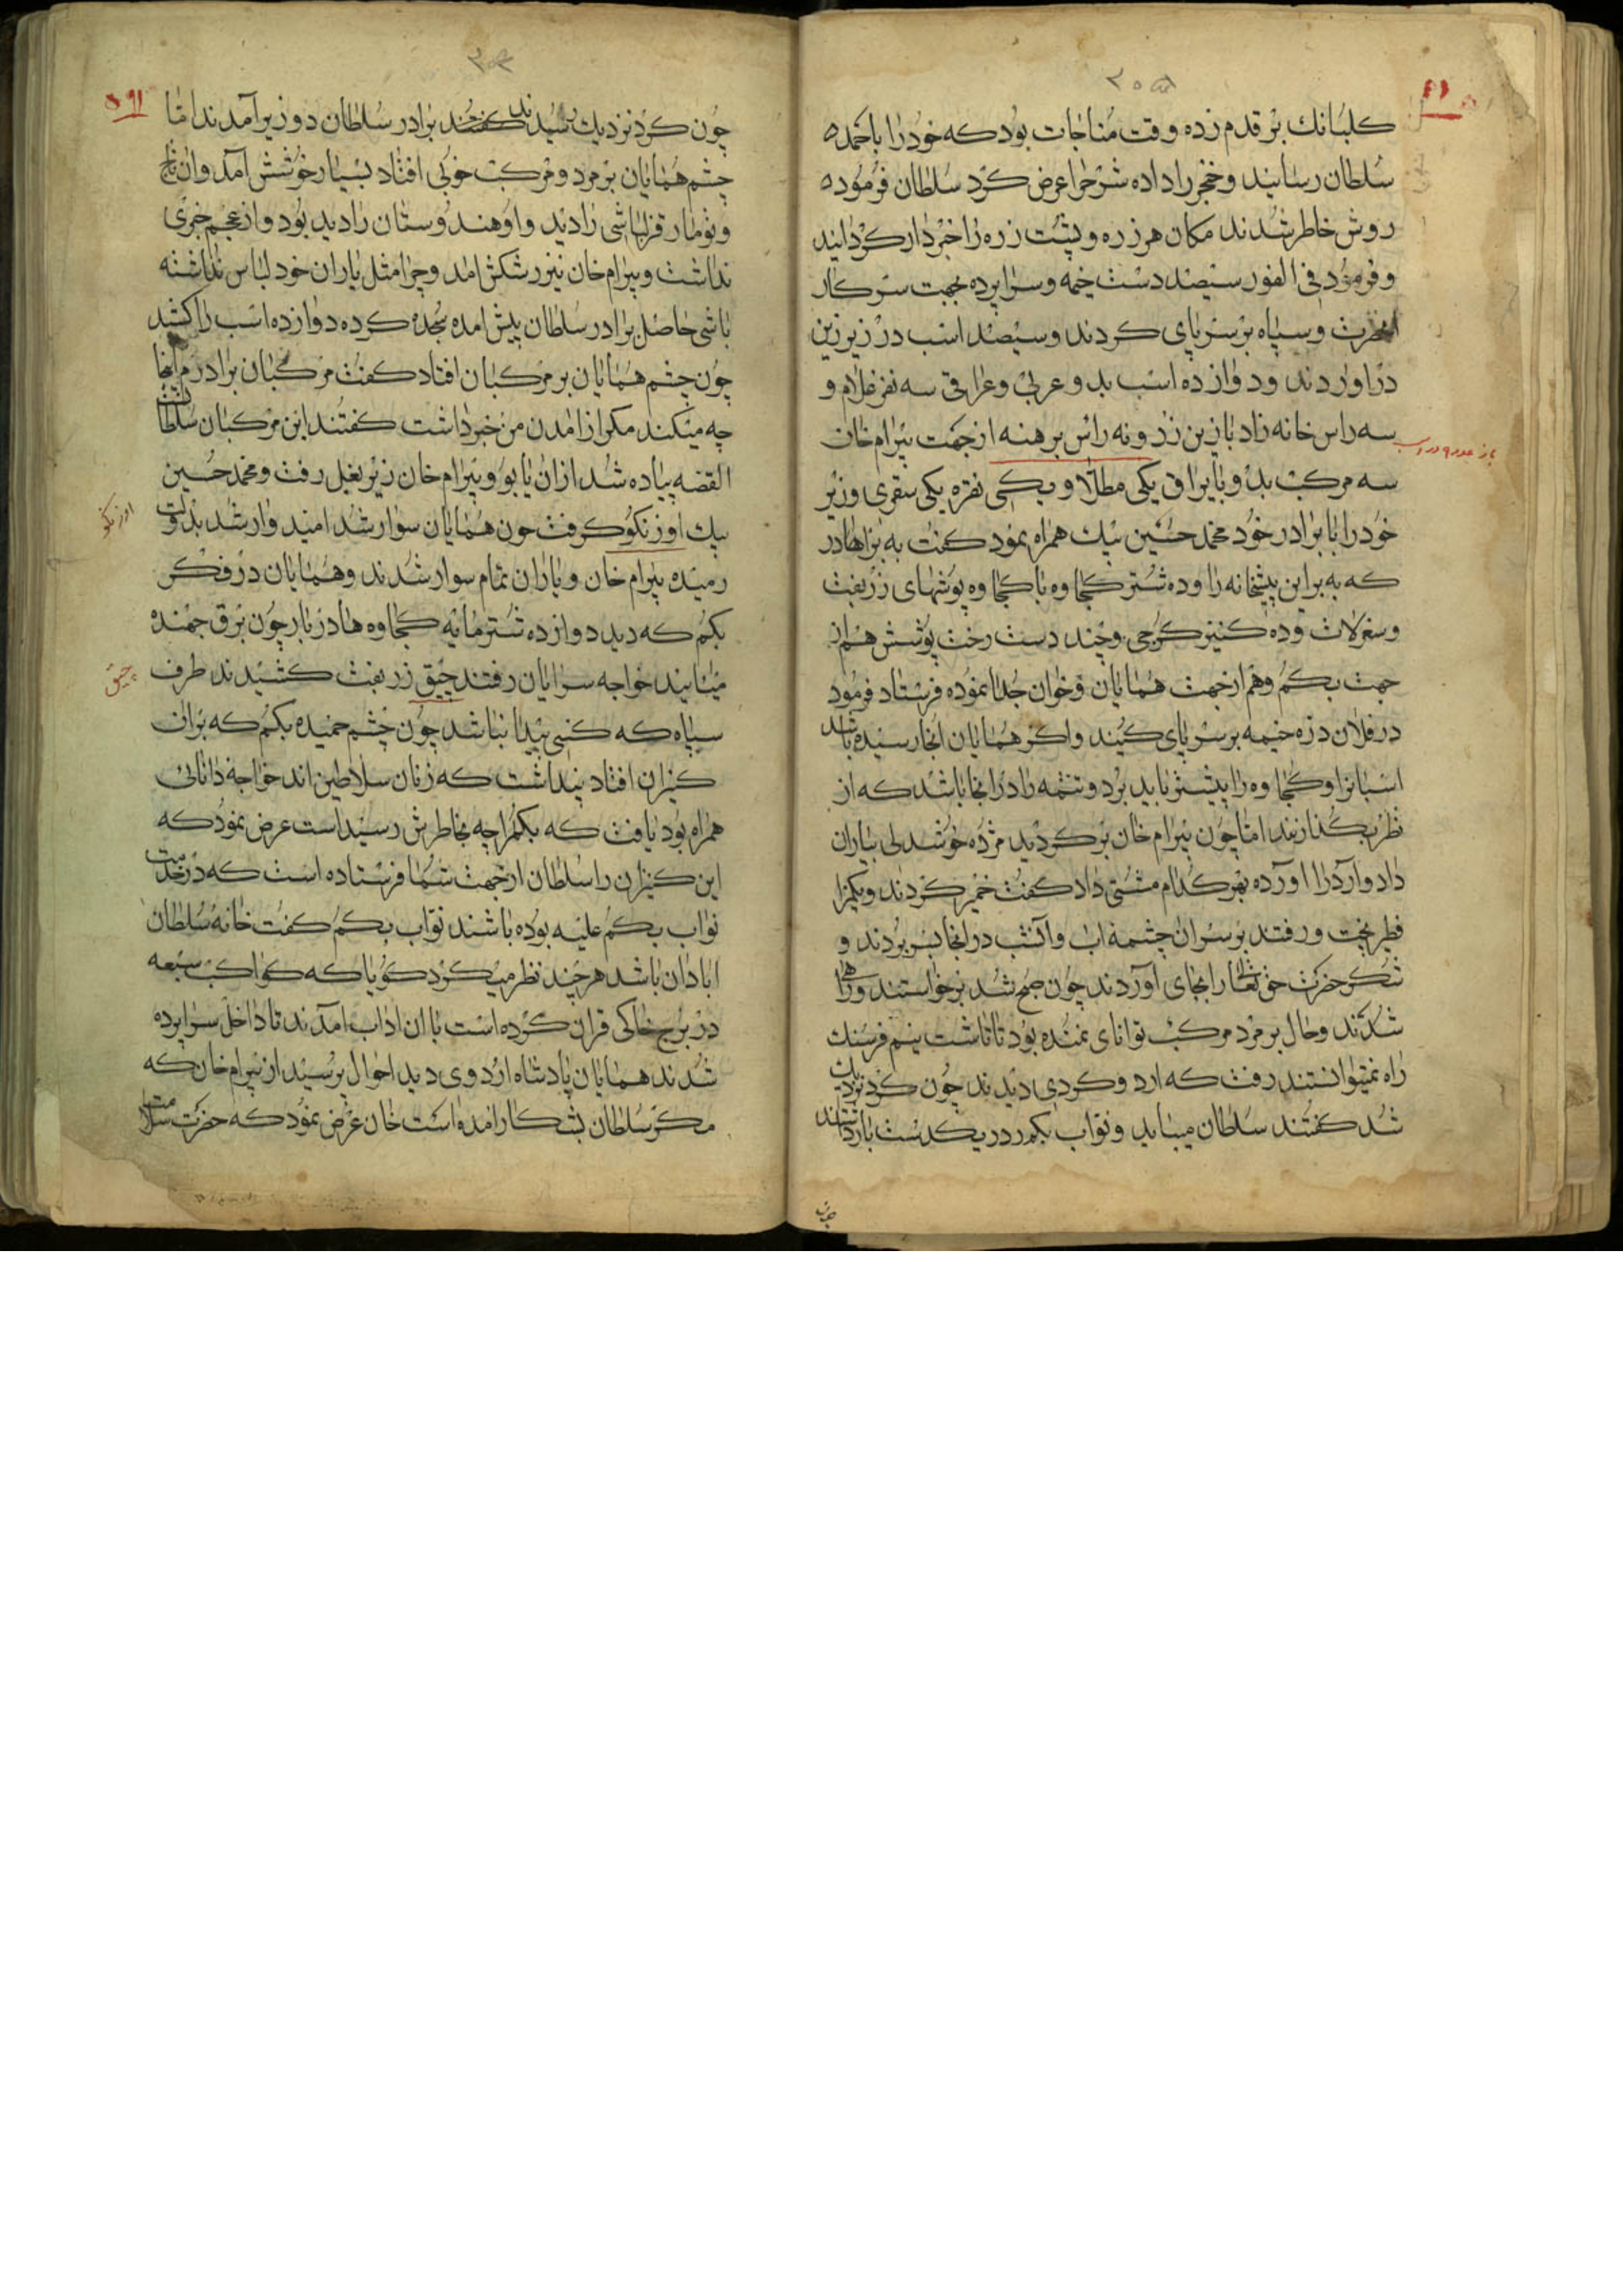 کلبانک بر قدم زده وقت مناجات بود که خود را باحمده
سلطان رسانید و خنجر را داده شرح را عرض کرد سلطان فرموده
روش خاطر شدند مکان هرزره و پشت زره را خبردار کردانید
و فرمود فی الفور سیصد دست خیمه و سراپرده بجهت سرکار
انحضرت و سپاه بر سرپای کردند و سیصد اسب در زیر زین
دراوردند و دوازده اسب بد و عربی و عراقی سه نفر غلام و
سه راس خانه زاد با زین زر و نه راس برهنه از جهت بیرام خان
سه مرکب بد و با یراق یکی مطلا و یکی نقره یکی سقری وزیر
خود را با برادر خود محمد حسین بیک همراه نمود کفت به براهادر
که به براین پیشخانه را و ده شتر کجاوه با کجاوه پوشهای زربفت
و سغرلات و ده کنیز کرجی و چند دست رخت پوشش هم از
جهت بکم و هم از جهت همایان و خوان جدا نموده فرستاد فرمود
در فلان دره خیمه بر سرپای کنید و اکر همایان انجا رسیده باشد
اسبانرا و کجاوه را پیشتر باید برد و تتمه را در انجا باشد که از
نظر بکذارند اما چون بیرام خان بر کردید مژده خوشدلی بیاران
داد و آرد را اورده بهر کدام مشتی داد کفت خمیر کردند و بکمرا
فطیر پخت و رفتند بر سران چشمه اب و آنشب در انجا بسر بردند و
شکر حضرت حق تعالی را بجای آوردند چون صبح شد برخواستند و راهی
شدند و حال بر مرد مرکب توانای نمنده بود تا تاشت نیم فرسنک
راه نمیتوانستند رفت که ارد و کردی دیدند چون کرد نزدیک
شد کفتند سلطان میباید و نواب بکم در یکدست بازداشتند
چون
چون کرد نزدیک رسیدند کفتند برادر سلطان و وزیر آمدند اما
چشم همایان بر مرد و مرکب خوبی افتاد بسیار خوشش آمد وان تاج
و نومار قزلباشی را دید و او هندوستان را دید بود و از عجم خبری
نداشت و بیرام خان نیز رشکش امد و چرا مثل یاران خود لباس نداشته
باشی حاصل برادر سلطان پیش امده سجده کرده دوازده اسب را کشید
چون چشم همایان بر مرکبان افتاد کفت مرکبان برادرم اینجا
چه میکند مکر از امدن من خبر داشت کفتند این مرکبان سلطان است
القصه پیاده شد ازان یابو و بیرام خان زیر بغل رفت و محمد حسین
بیک اوزنکو کرفت حون همایان سوار شد امید وار شد بدولت
رمیده بیرام خان و یاران تمام سوار شدند و همایان در فکر
بکم که دید دوازده شتر مایه کجاوه ها در بار چون برق جمنده
میایند خواجه سرایان رفتند چیق زربفت کشیدند طرف
سپاه که کسی پیدا نباشد چون چشم حمیده بکم که بران
کنیزان افتاد پنداشت که زنان سلاطین اند خواجه دانائی
همراه بود یافت که بکم را چه بخاطرش رسید است عرض نمود که
این کنیزان را سلطان از جهت شما فرستاده است که در خدمت
نواب بکم علیه بوده باشند نواب بکم کفت خانه سلطان
ابادان باشد هر چند نظر میکرد کویا که کواکب سبعه
در برج خاکی قران کرده است با ان اداب امدند تا داخل سراپرده
شدند همایان پادشاه اردوی دید احوال پرسید از بیرام خان که
مکر سلطان بشکار امده است خان عرض نمود که حضرت سلامت
اوزنکو
چیق